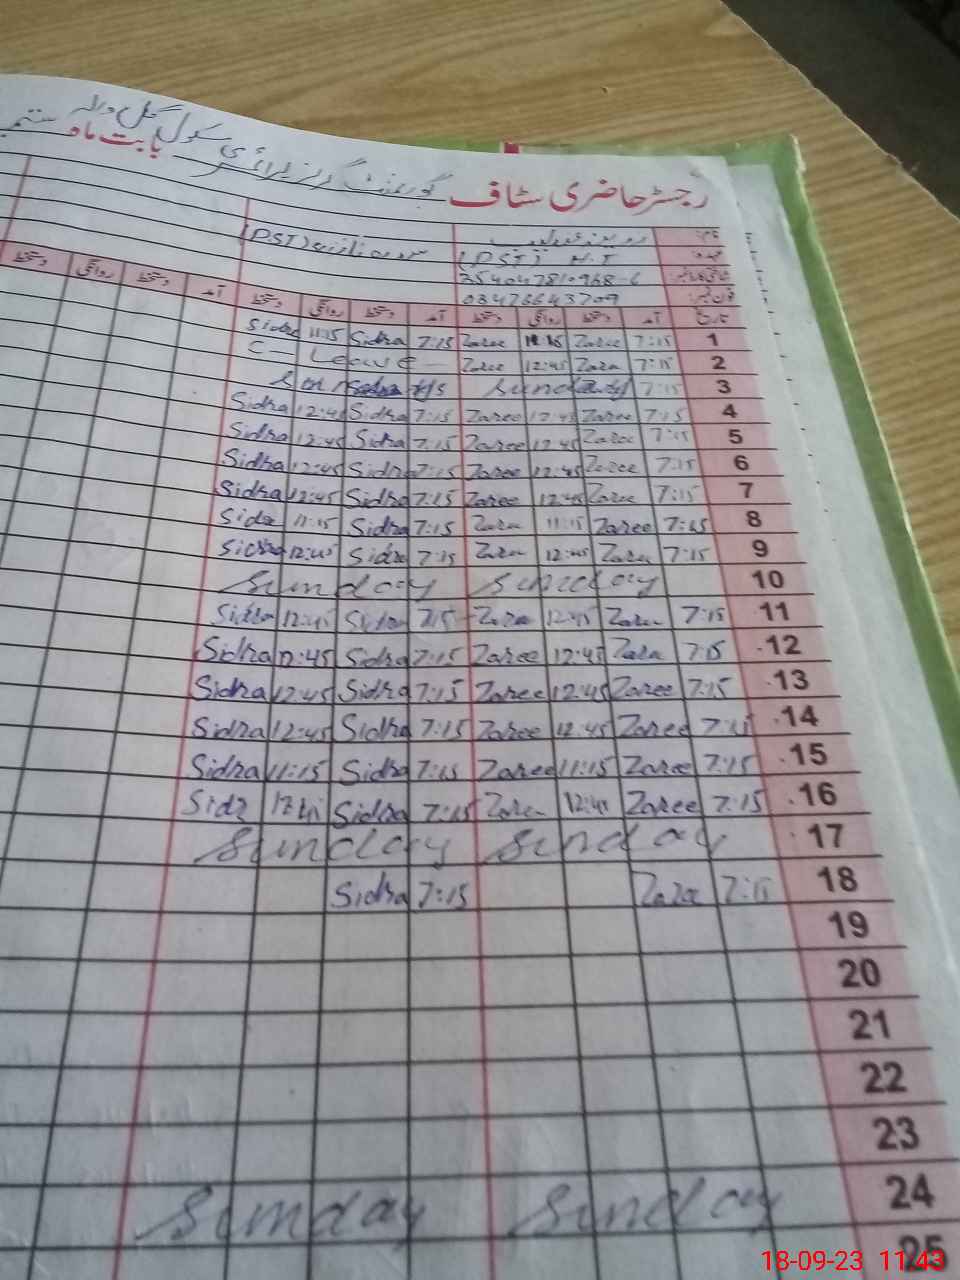 رجسٹر حاضری سٹاف گورنمنٹ گرلز پرائمری سکول گل والہ بابت ماہ ستمبر
نام
(PST) H.T (PST)
035404781096
03476643709
تاریخ آمد دستخط روانگی دستخط آمد دستخط روانگی دستخط آمد دستخط روانگی دستخط
1 7:15 Zaree Zaree 7:15 Sidra 11:15 Sidra
2 7:15 Zara 12:45 Zaree Leave
3 7:15 Sunday
4 7:15 Zaree 12:45 Zaree 7:15 Sidra 12:45 Sidra
5 7:15 Zaree 12:45 Zaree 7:15 Sidra 12:45 Sidra
6 7:15 Zaree 12:45 Zaree 7:15 Sidra 12:45 Sidra
7 7:15 Zaree 12:45 Zaree 7:15 Sidra 12:45 Sidra
8 7:15 Zaree 11:15 Zara 7:15 Sidra 11:15 Sidra
9 7:15 Zara 12:45 Zara 7:15 Sidra 12:45 Sidra
10 Sunday Sunday
11 7:15 Zara 12:45 Zara 7:15 Sidra 12:45 Sidra
12 7:15 Zara 12:45 Zaree 7:15 Sidra 12:45 Sidra
13 7:15 Zaree 12:45 Zaree 7:15 Sidra 12:45 Sidra
14 7:15 Zaree 12:45 Zaree 7:15 Sidra 12:45 Sidra
15 7:15 Zaree 11:15 Zaree 7:15 Sidra 11:15 Sidra
16 7:15 Zaree 12:45 Zaree 7:15 Sidra Sidr
17 Sunday Sunday
18 7:15 Zara 7:15 Sidra
19
20
21
22
23
24 Sunday Sunday
25
18-09-23 11:43